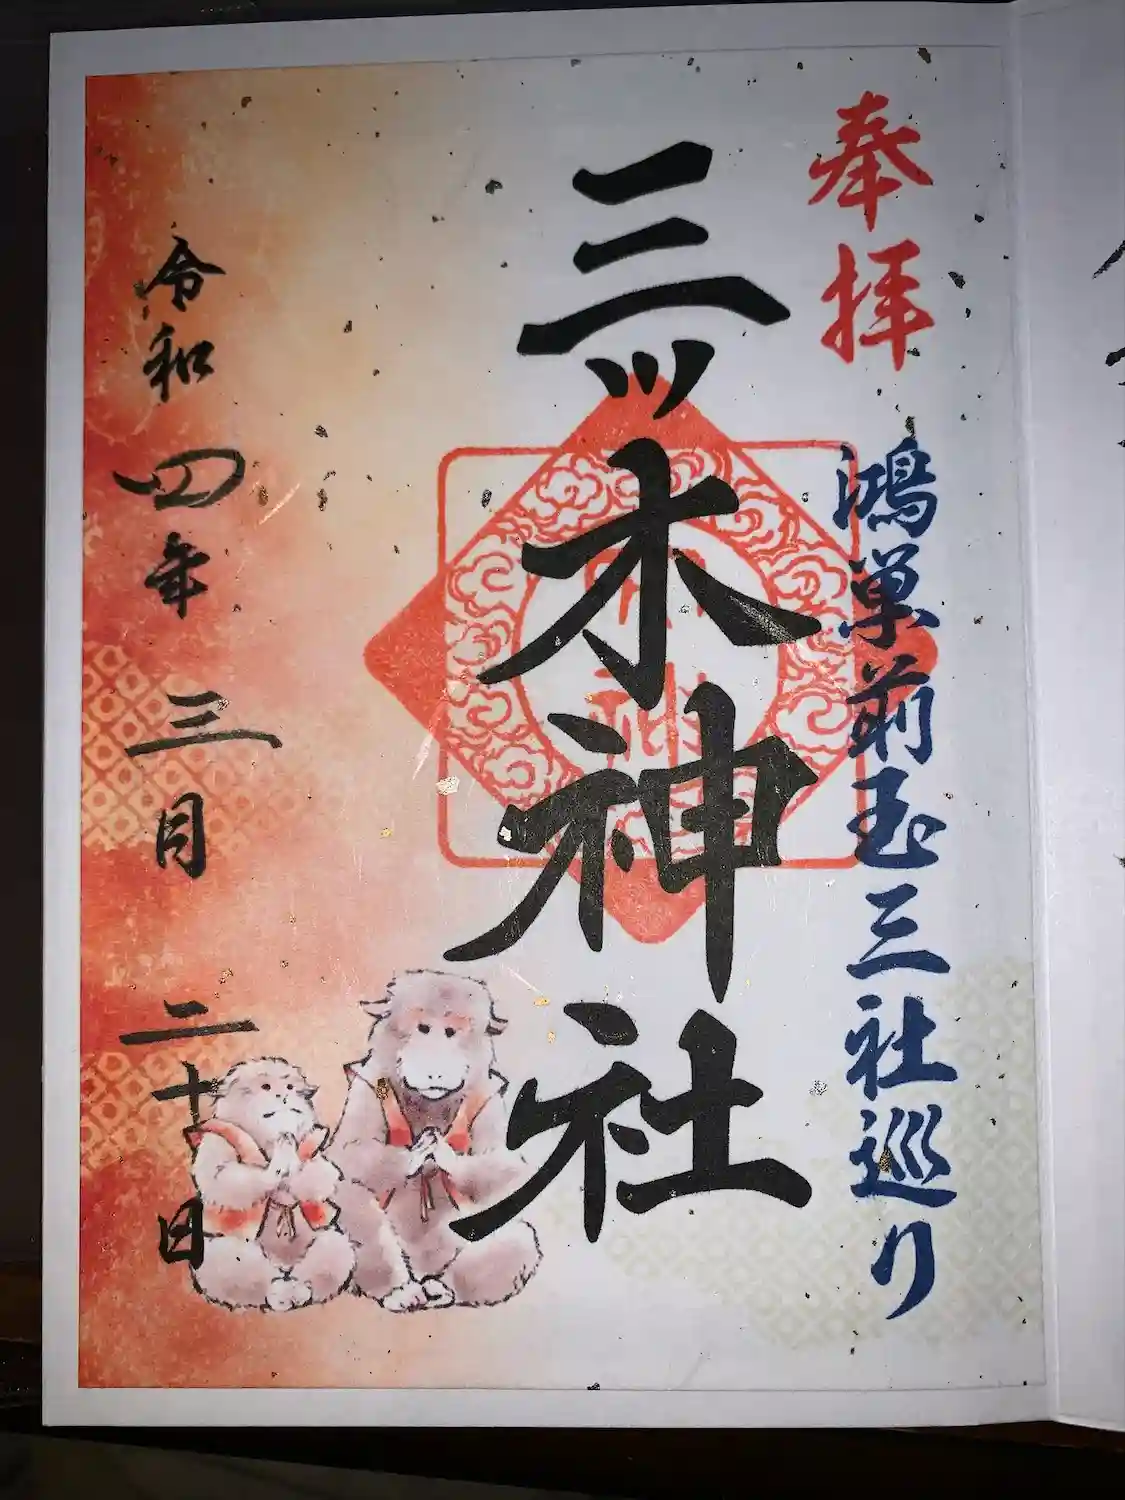 奉拝
鴻巣前玉三社巡り
三ッ木神社
令和四年三月二十日